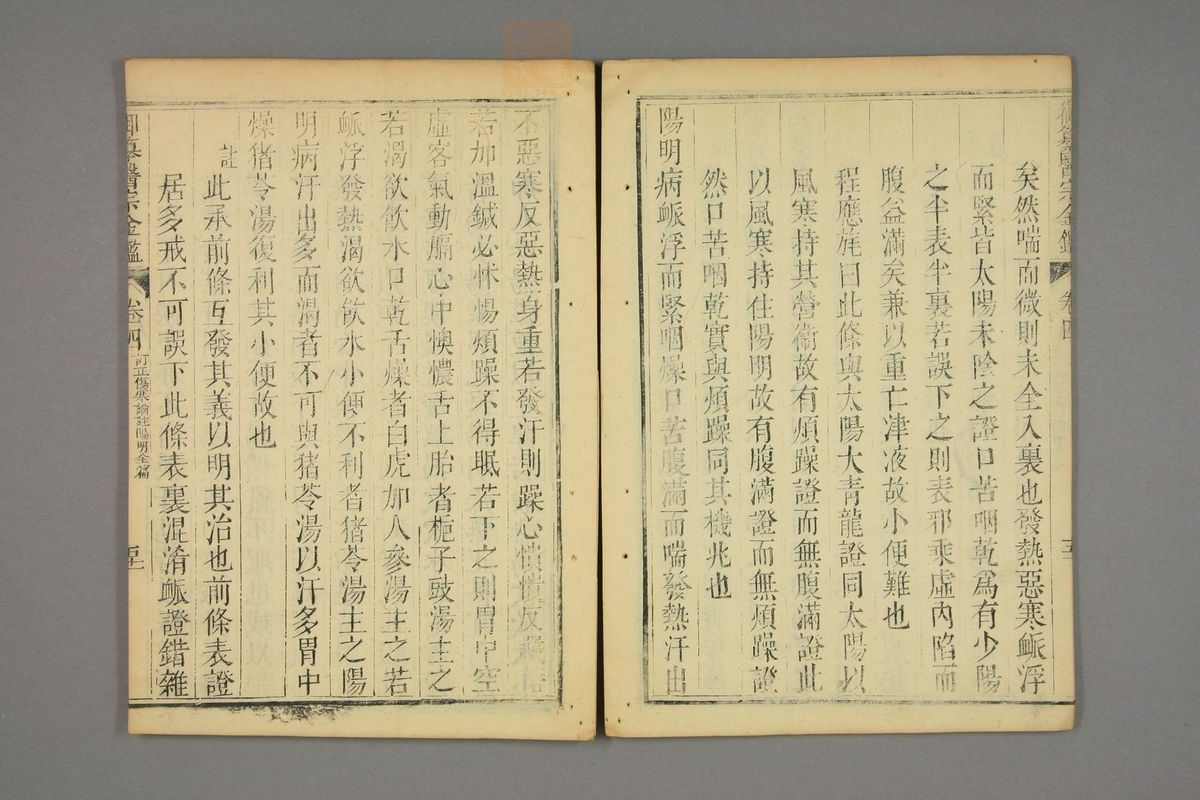 御纂醫宗金鑑 卷四
矣然喘而微則未全入裏也發熱惡寒䘑浮
而緊皆太陽未除之證口苦咽乾為有少陽
之半表半裏若誤下之則表邪乘虛內陷而
腹益滿矣兼以重亡津液故小便難也
程應旄曰此條與太陽大青龍證同太陽以
風寒持其營衞故有煩躁證而無腹滿證此
以風寒持住陽明故有腹滿證而無煩躁證
然口苦咽乾實與煩躁同其機兆也
陽明病䘑浮而緊咽燥口苦腹滿而喘發熱汗出
不惡寒反惡熱身重若發汗則躁心憒憒反
若加溫鍼必怵惕煩躁不得眠若下之則胃中空
虛客氣動膈心中懊憹舌上胎者梔子豉湯主之
若渴欲飲水口乾舌燥者白虎加人參湯主之若
䘑浮發熱渴欲飲水小便不利者猪苓湯主之陽
明病汗出多而渴者不可與猪苓湯以汗多胃中
燥猪苓湯復利其小便故也
註此承前條互發其義以明其治也前條表證
居多戒不可誤下此條表裏混淆䘑證錯雜
御纂醫宗金鑑 卷四 訂正傷寒論註陽明全篇